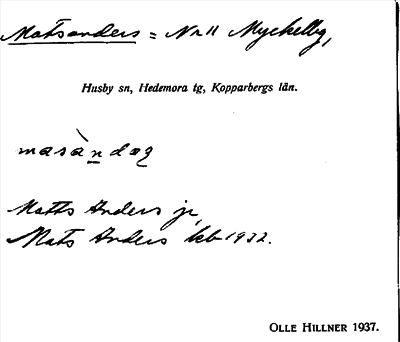 Matsanders = Nr 11 Myckelby,
Husby sn, Hedemora tg, Kopparbergs län.
masàndaʒ
Matts Anders jr,
Mats Anders kb 1932.
OLLE HILLNER 1937.